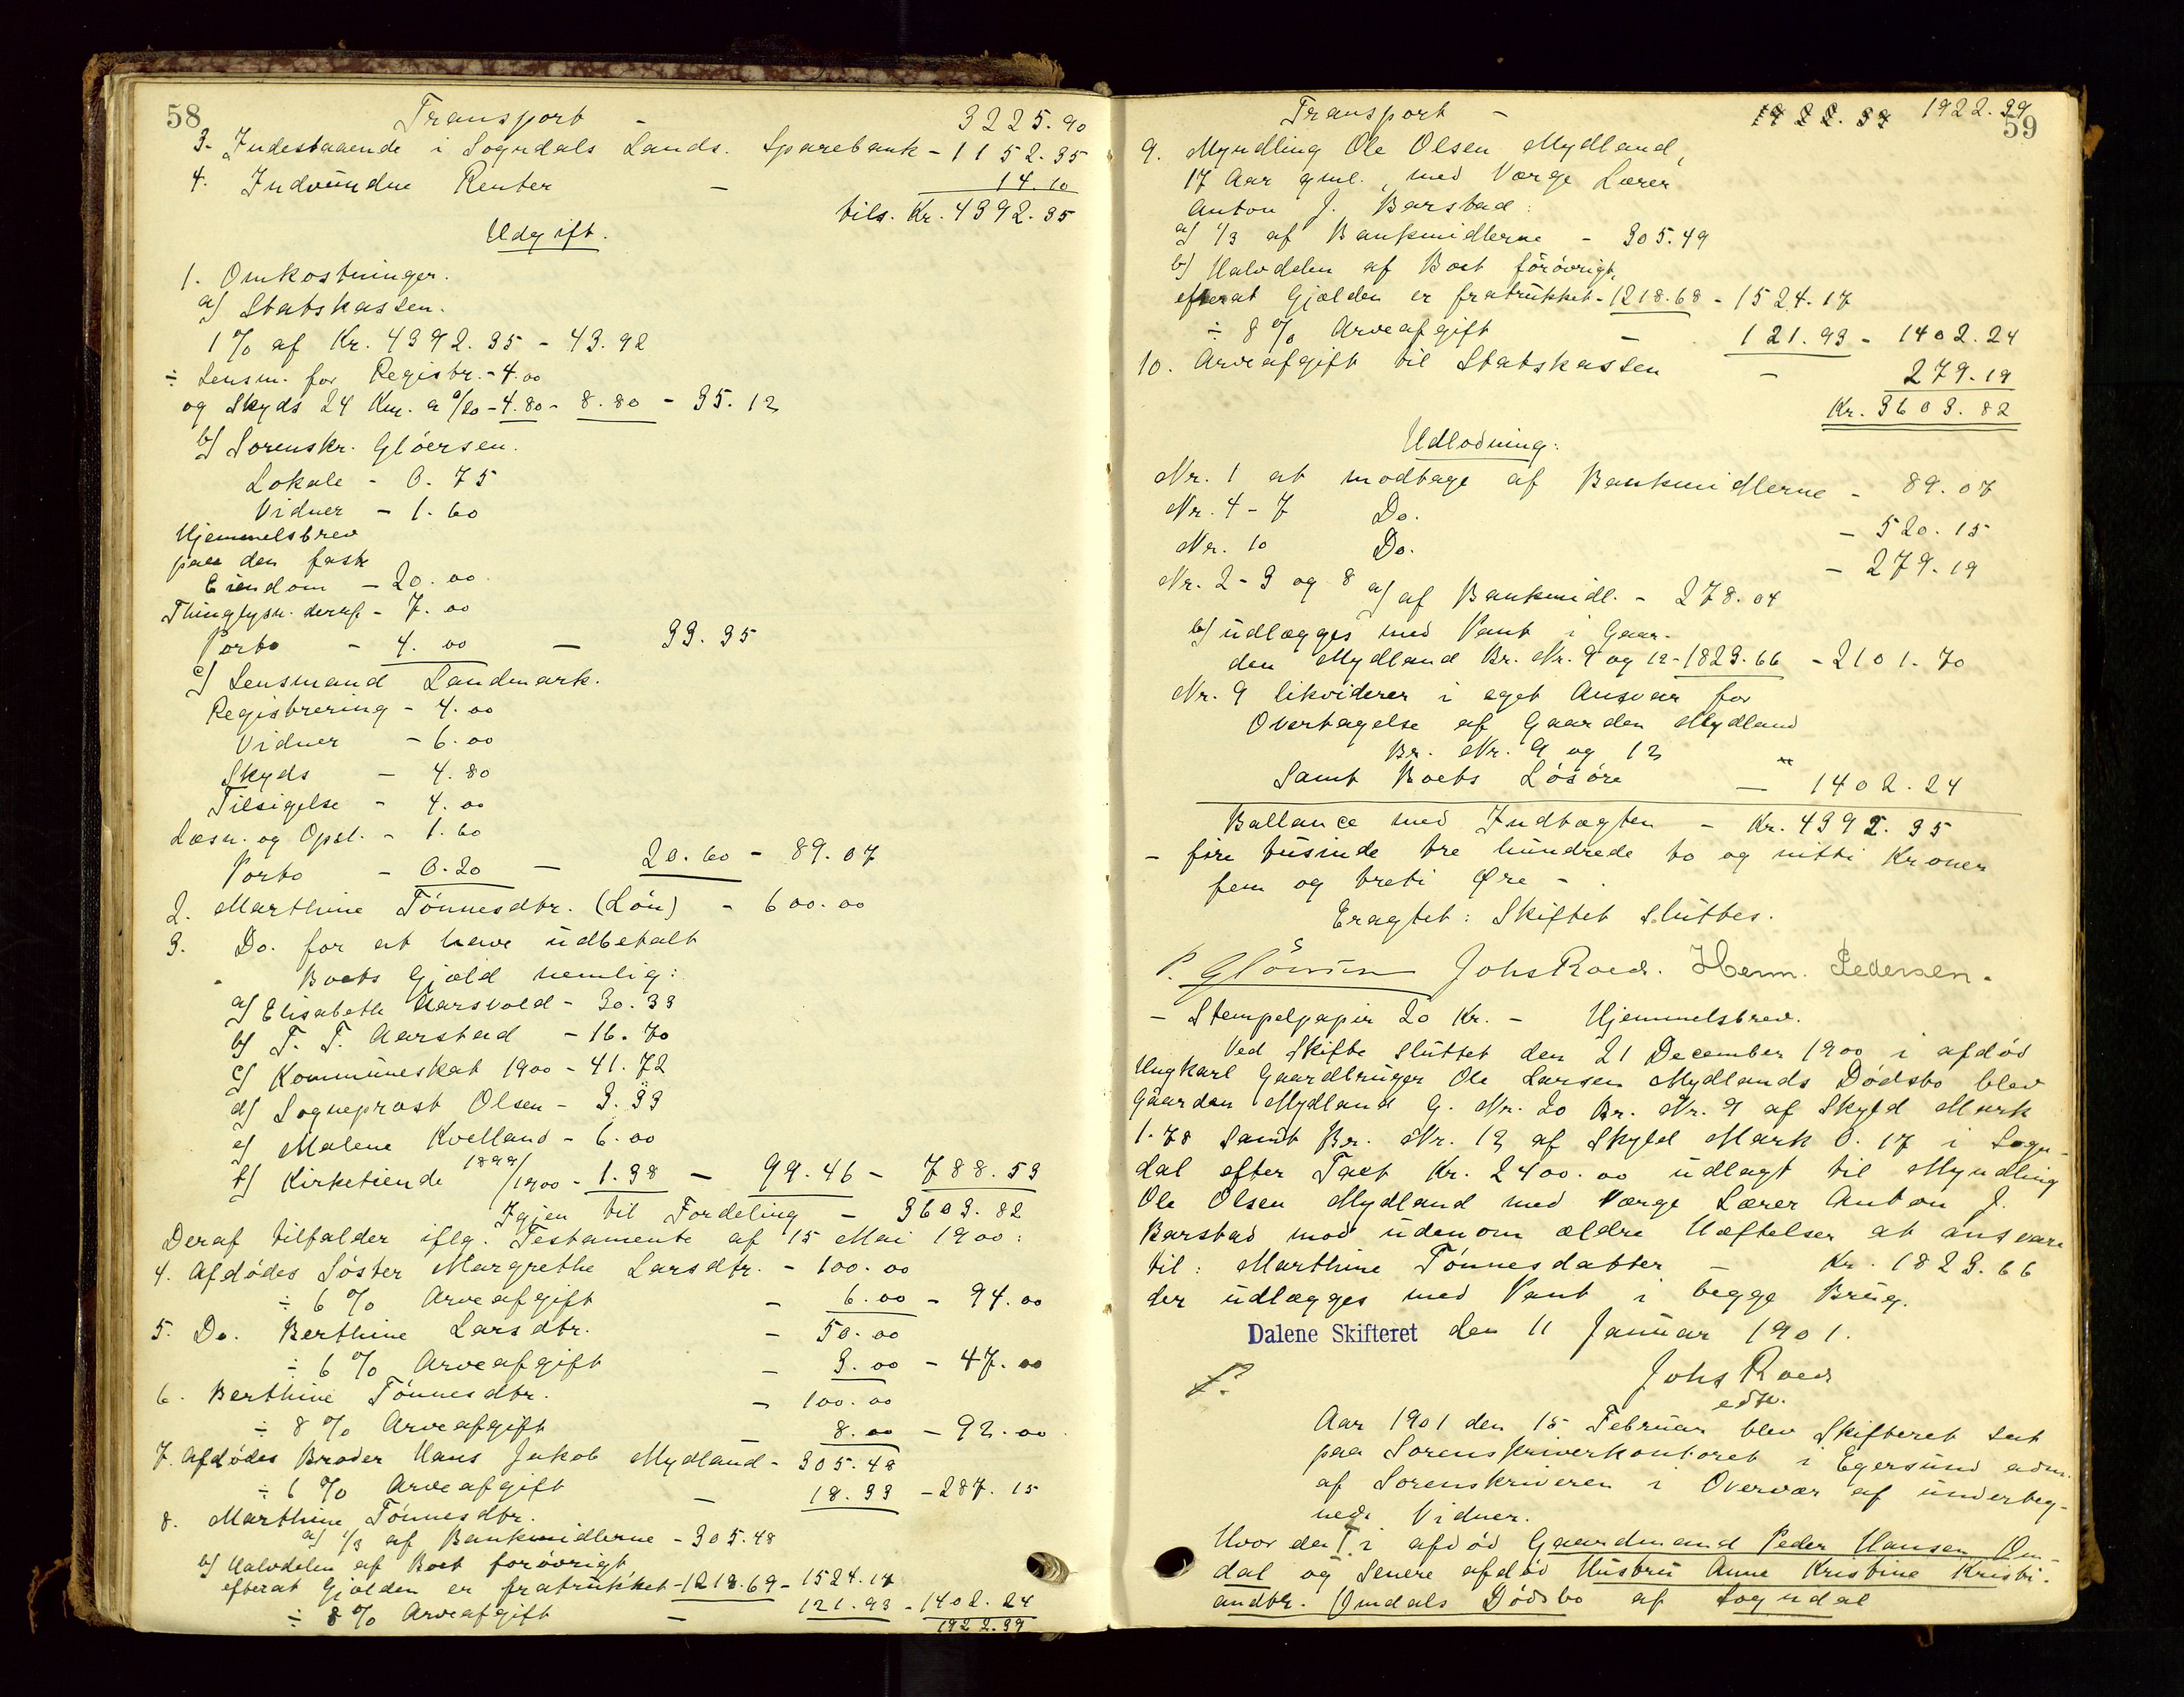 58
Transport - 3225.90
3. Indestaaende i Sogndals Lands. Sparebank - 1152.35
4. Indvundne Renter - 14.10
tils. Kr. 4392.35
Udgift.
1. Omkostninger.
a) Statskassen.
1 % af Kr. 4392.35 - 43.92
÷ Lensm. for Registr. - 4.00
og Skyds 24 Km. a 0/20 - 4.80 - 8.80 - 35.12
b) Sorenskr. Glöersen.
Lokale - 0.75
Vidner - 1.60
Hjemmelsbrev
paa den faste
Eiendom - 20.00
Thinglysn. deraf - 7.00
Porto - 4.00 - 33.35
c) Lensmand Landmark.
Registrering - 4.00
Vidner - 6.00
Skyds - 4.80
Tilsigelse - 4.00
Læsn. og Opsl. - 1.60
Porto - 0.20 - 20.60 - 89.07
2. Marthine Tönnesdtr. (Lön) - 600.00
3. Do. for at have udbetalt
Boets Gjæld nemlig:
a) Elisabeth Aarsvold - 30.33
b) T. T. Aarstad - 16.70
c) Kommuneskat 1900 - 41.72
d) Sogneprost Olsen - 3.33
e) Malene Kvelland - 6.00
f) Kirketiende 1899/1900 - 1.38 - 99.46 - 788.53
Igjen til Fordeling - 3603.82
Deraf tilfalder iflg. Testamente af 15 Mai 1900:
4. Afdödes Söster Margrethe Larsdtr. - 100.00
÷ 6 % Arveafgift - 6.00 - 94.00
5. Do. Berthine Larsdtr. - 50.00
÷ 6 % Arveafgift - 3.00 - 47.00
6. Berthine Tönnesdtr. - 100.00
÷ 8 % Arveafgift - 8.00 - 92.00
7. Afdödes Broder Hans Jakob Mydland - 305.48
÷ 6 % Arveafgift - 18.33 - 287.15
8. Marthine Tönnesdtr.
a) 1/3 af Bankmidlerne - 305.48
b) Halvdelen af Boet forövrigt,
efterat Gjælden er fratrukket - 1218.69 - 1524.17
÷ 8 % Arveafgift - 121.93 - 1402.24
1922.39
59
Transport - 1922.39 1922.39
9. Myndling Ole Olsen Mydland,
17 Aar gml., med Værge Lærer
Anton J. Barstad:
a) 1/3 af Bankmidlerne - 305.49
b) Halvdelen af Boet forövrigt,
efterat Gjælden er fratrukket - 1218.68 - 1524.17
÷ 8 % Arveafgift - 121.93 - 1402.24
10. Arveafgift til Statskassen - 279.19
Kr. 3603.82
Udlodning:
Nr. 1 at modtage af Bankmidlerne - 89.07
Nr. 4 - 7 Do. - 520.15
Nr. 10 Do. - 279.19
Nr. 2 - 3 og 8 a) af Bankmidl. - 278.04
b) udlægges med Pant i Gaar-
den Mydland Br. Nr. 9 og 12 - 1823.66 - 2101.70
Nr. 9 likviderer i eget Ansvar for
Overtagelse af Gaarden Mydland
Br. Nr. 9 og 12
samt Boets Lösöre - 1402.24
Ballance med Indtægten - Kr. 4392.35
- fire tusinde tre hundrede to og nitti Kroner
fem og treti Øre -
Eragtet: Skiftet sluttes.
P. Glöersen Johs Roed. Herm. Pedersen.
- Stempelpapir 20 Kr. - Hjemmelsbrev.
Ved Skifte sluttet den 21 December 1900 i afdöd
Ungkarl Gaardbruger Ole Larsen Mydlands Dödsbo blev
Gaarden Mydland G. Nr. 20 Br. Nr. 9 af Skyld Mark
1.78 samt Br. Nr. 12 af Skyld Mark 0.17 i Sogn-
dal efter Taxt Kr. 2400.00 udlagt til Myndling
Ole Olsen Mydland med Værge Lærer Anton J.
Barstad mod udenom ældre Hæftelser at ansvare
til: Marthine Tönnesdatter - Kr. 1823.66
der udlægges med Pant i begge Brug.
Dalene Skifteret den 11 Januar 1901.
Johs Roed
edsv.
Aar 1901 den 15 Februar blev Skifteret sat
paa Sorenskriverkontoret i Egersund adm.
af Sorenskriveren i Overvær af underteg-
nede Vidner.
Hvorda T. i afdöd Gaardmand Peder Hansen Om-
dal og senere afdöd Hustru Anne Kristine Kristi-
andtr. Omdals Dödsbo af Sogndal